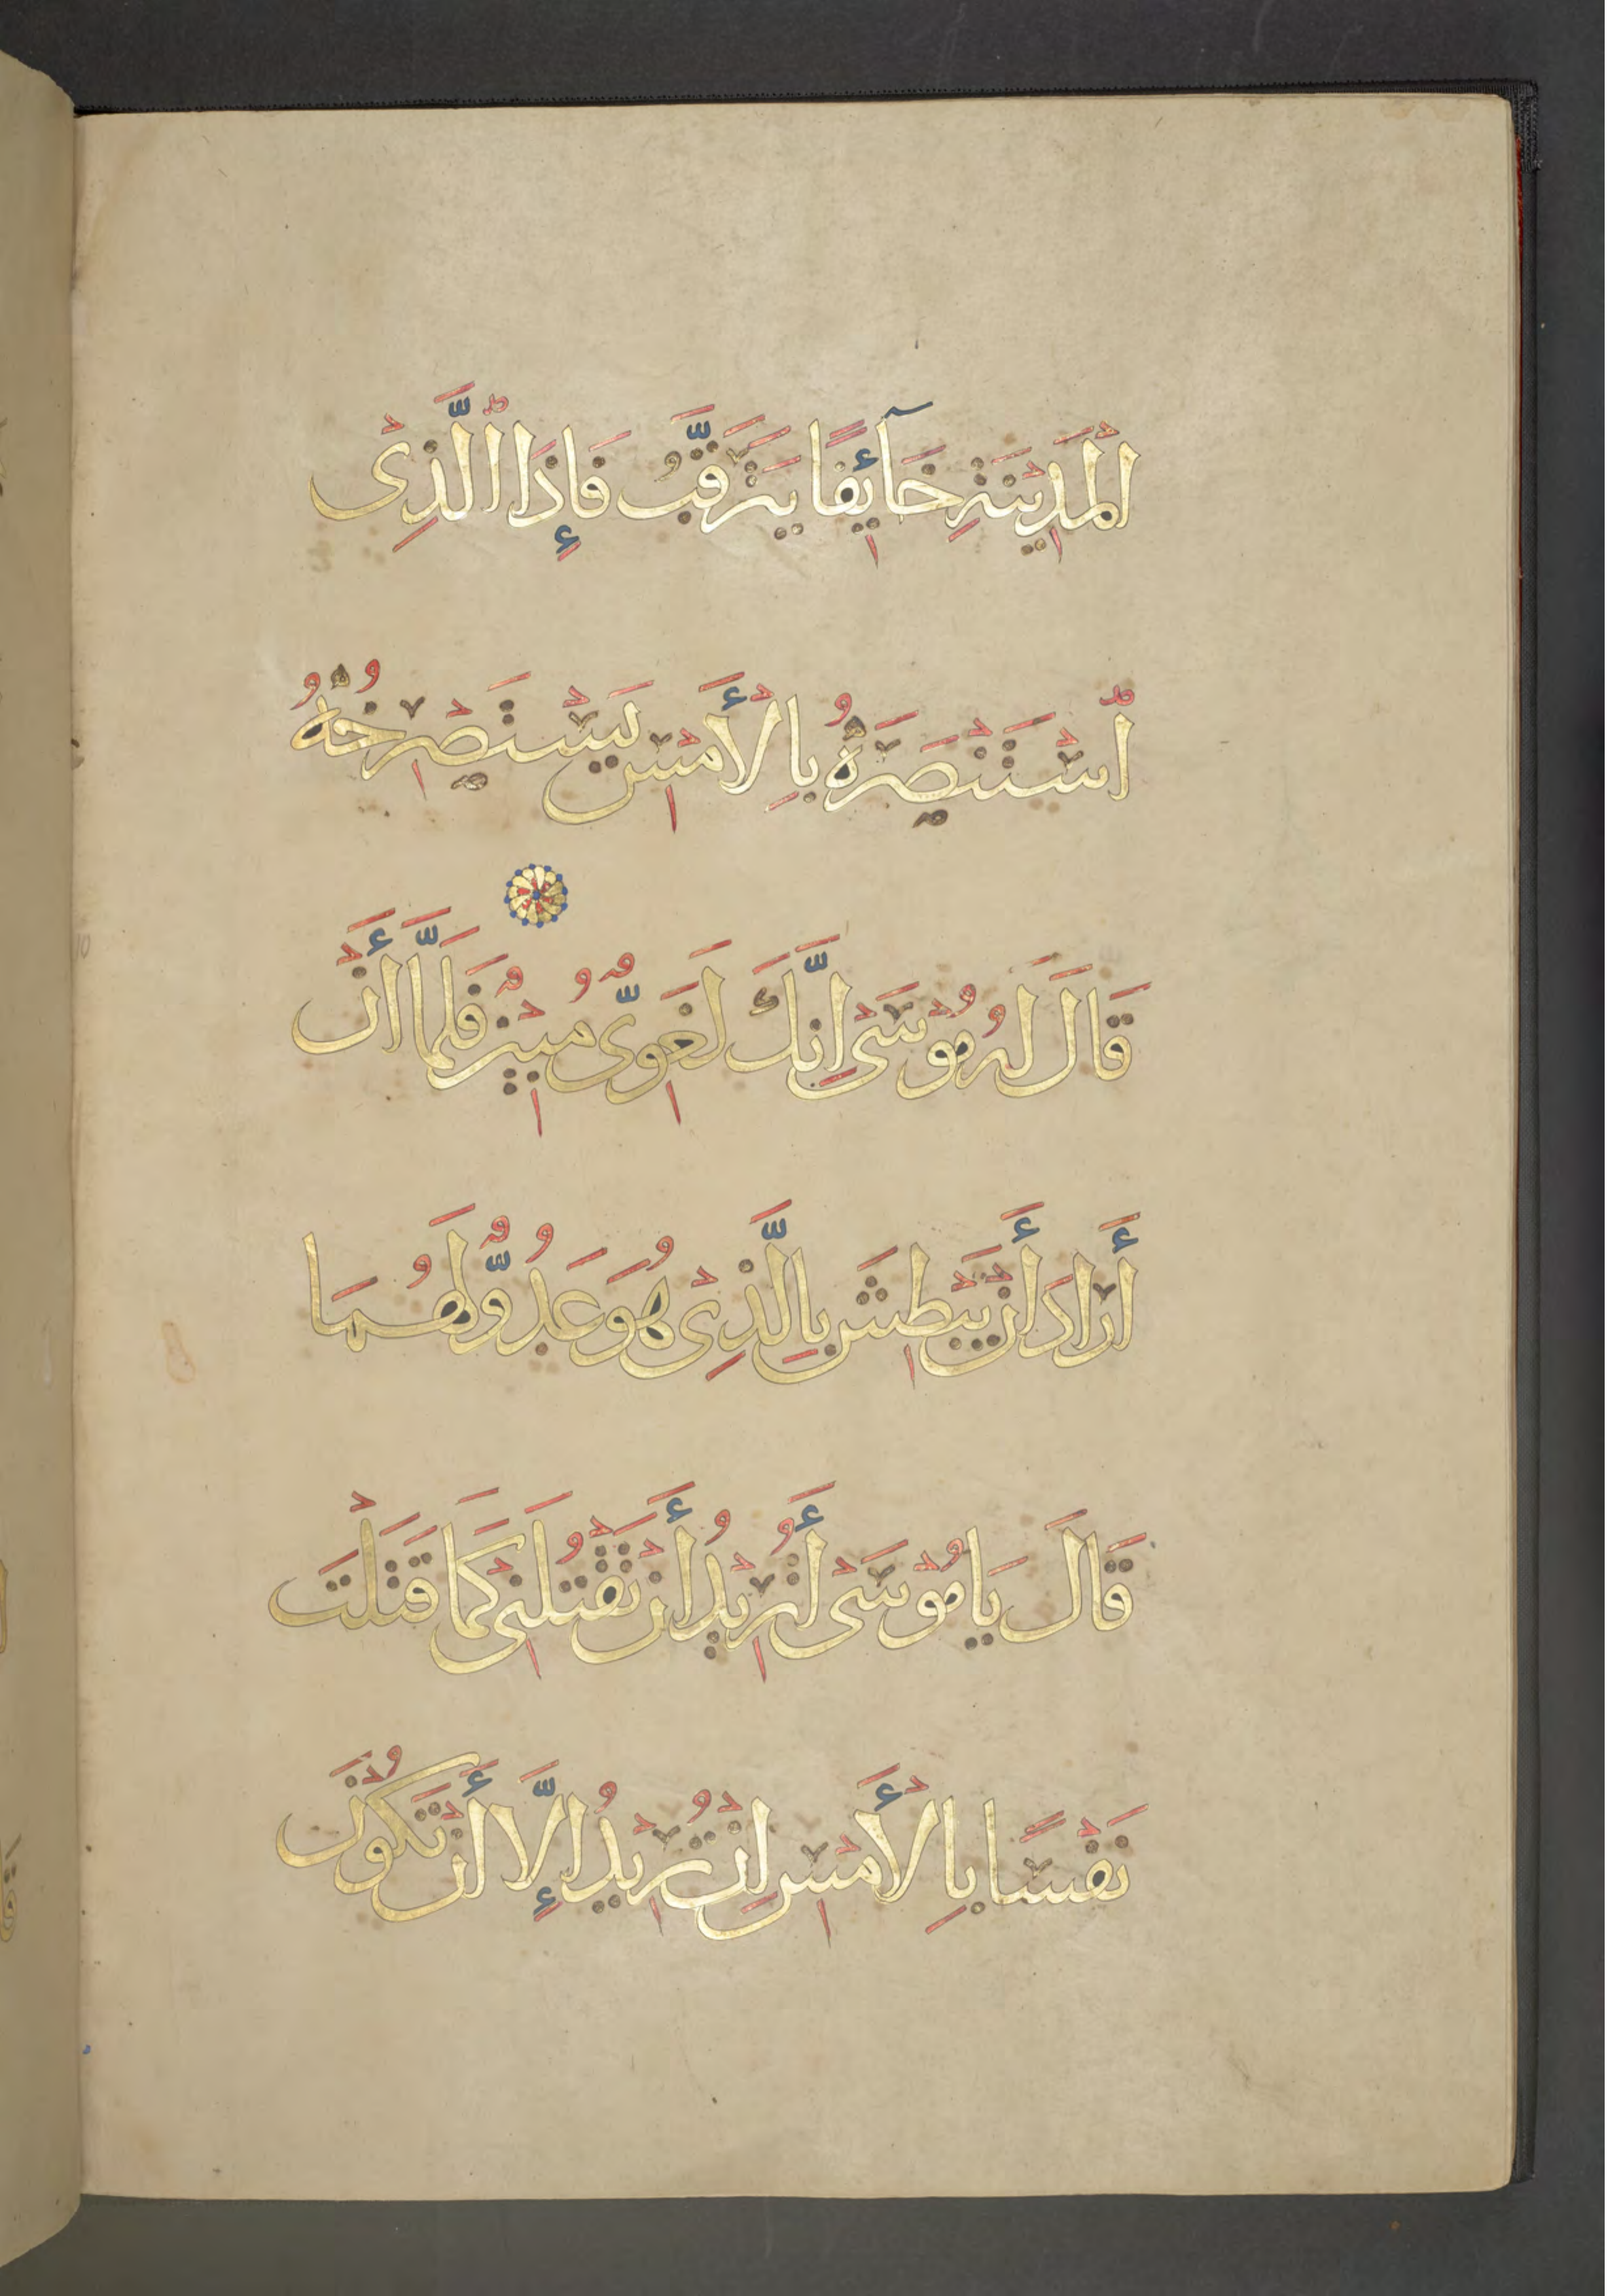 الْمَدِيْنَةِ خَآئِفًا يَتَرَقَّبُ فَإِذَا الَّذِىْ
اسْتَنْصَرَهُ بِالْأَمْسِ يَسْتَصْرِخُهُ
قَالَ لَهُ مُوْسَىْ إِنَّكَ لَغَوِىٌّ مُبِيْنٌ فَلَمَّا أَنْ
أَرَادَ أَنْ يَبْطِشَ بِالَّذِىْ هُوَ عَدُوٌّ لَهُمَا
قَالَ يَا مُوْسَىْ أَتُرِيْدُ أَنْ تَقْتُلَنِىْ كَمَا قَتَلْتَ
نَفْسًا بِالْأَمْسِ إِنْ تُرِيْدُ إِلَّا أَنْ تَكُوْنَ